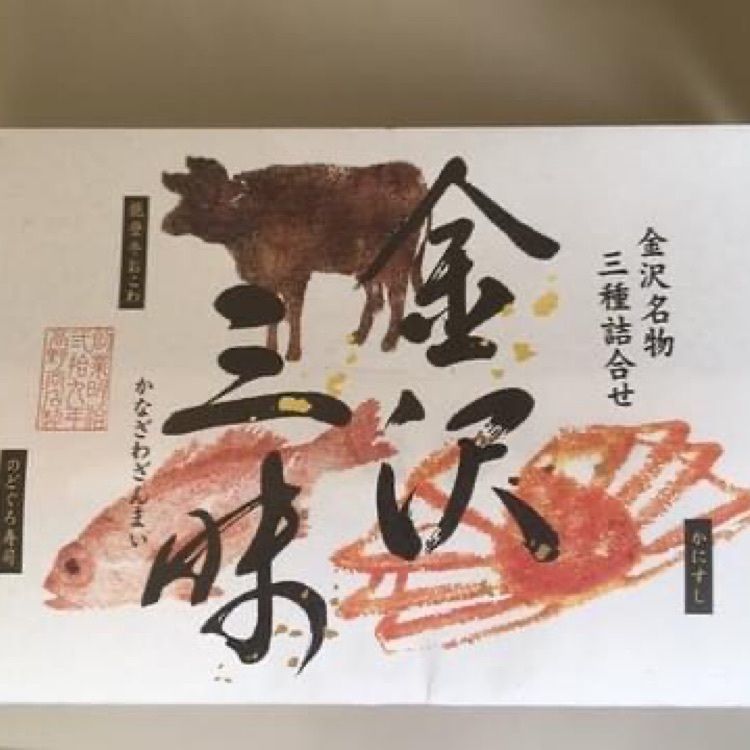 金沢名物
三種詰合せ
金沢
三味
かなざわざんまい
能登牛おこわ
かにすし
のどぐろ寿司
創業明治
弐拾九年
高野商店